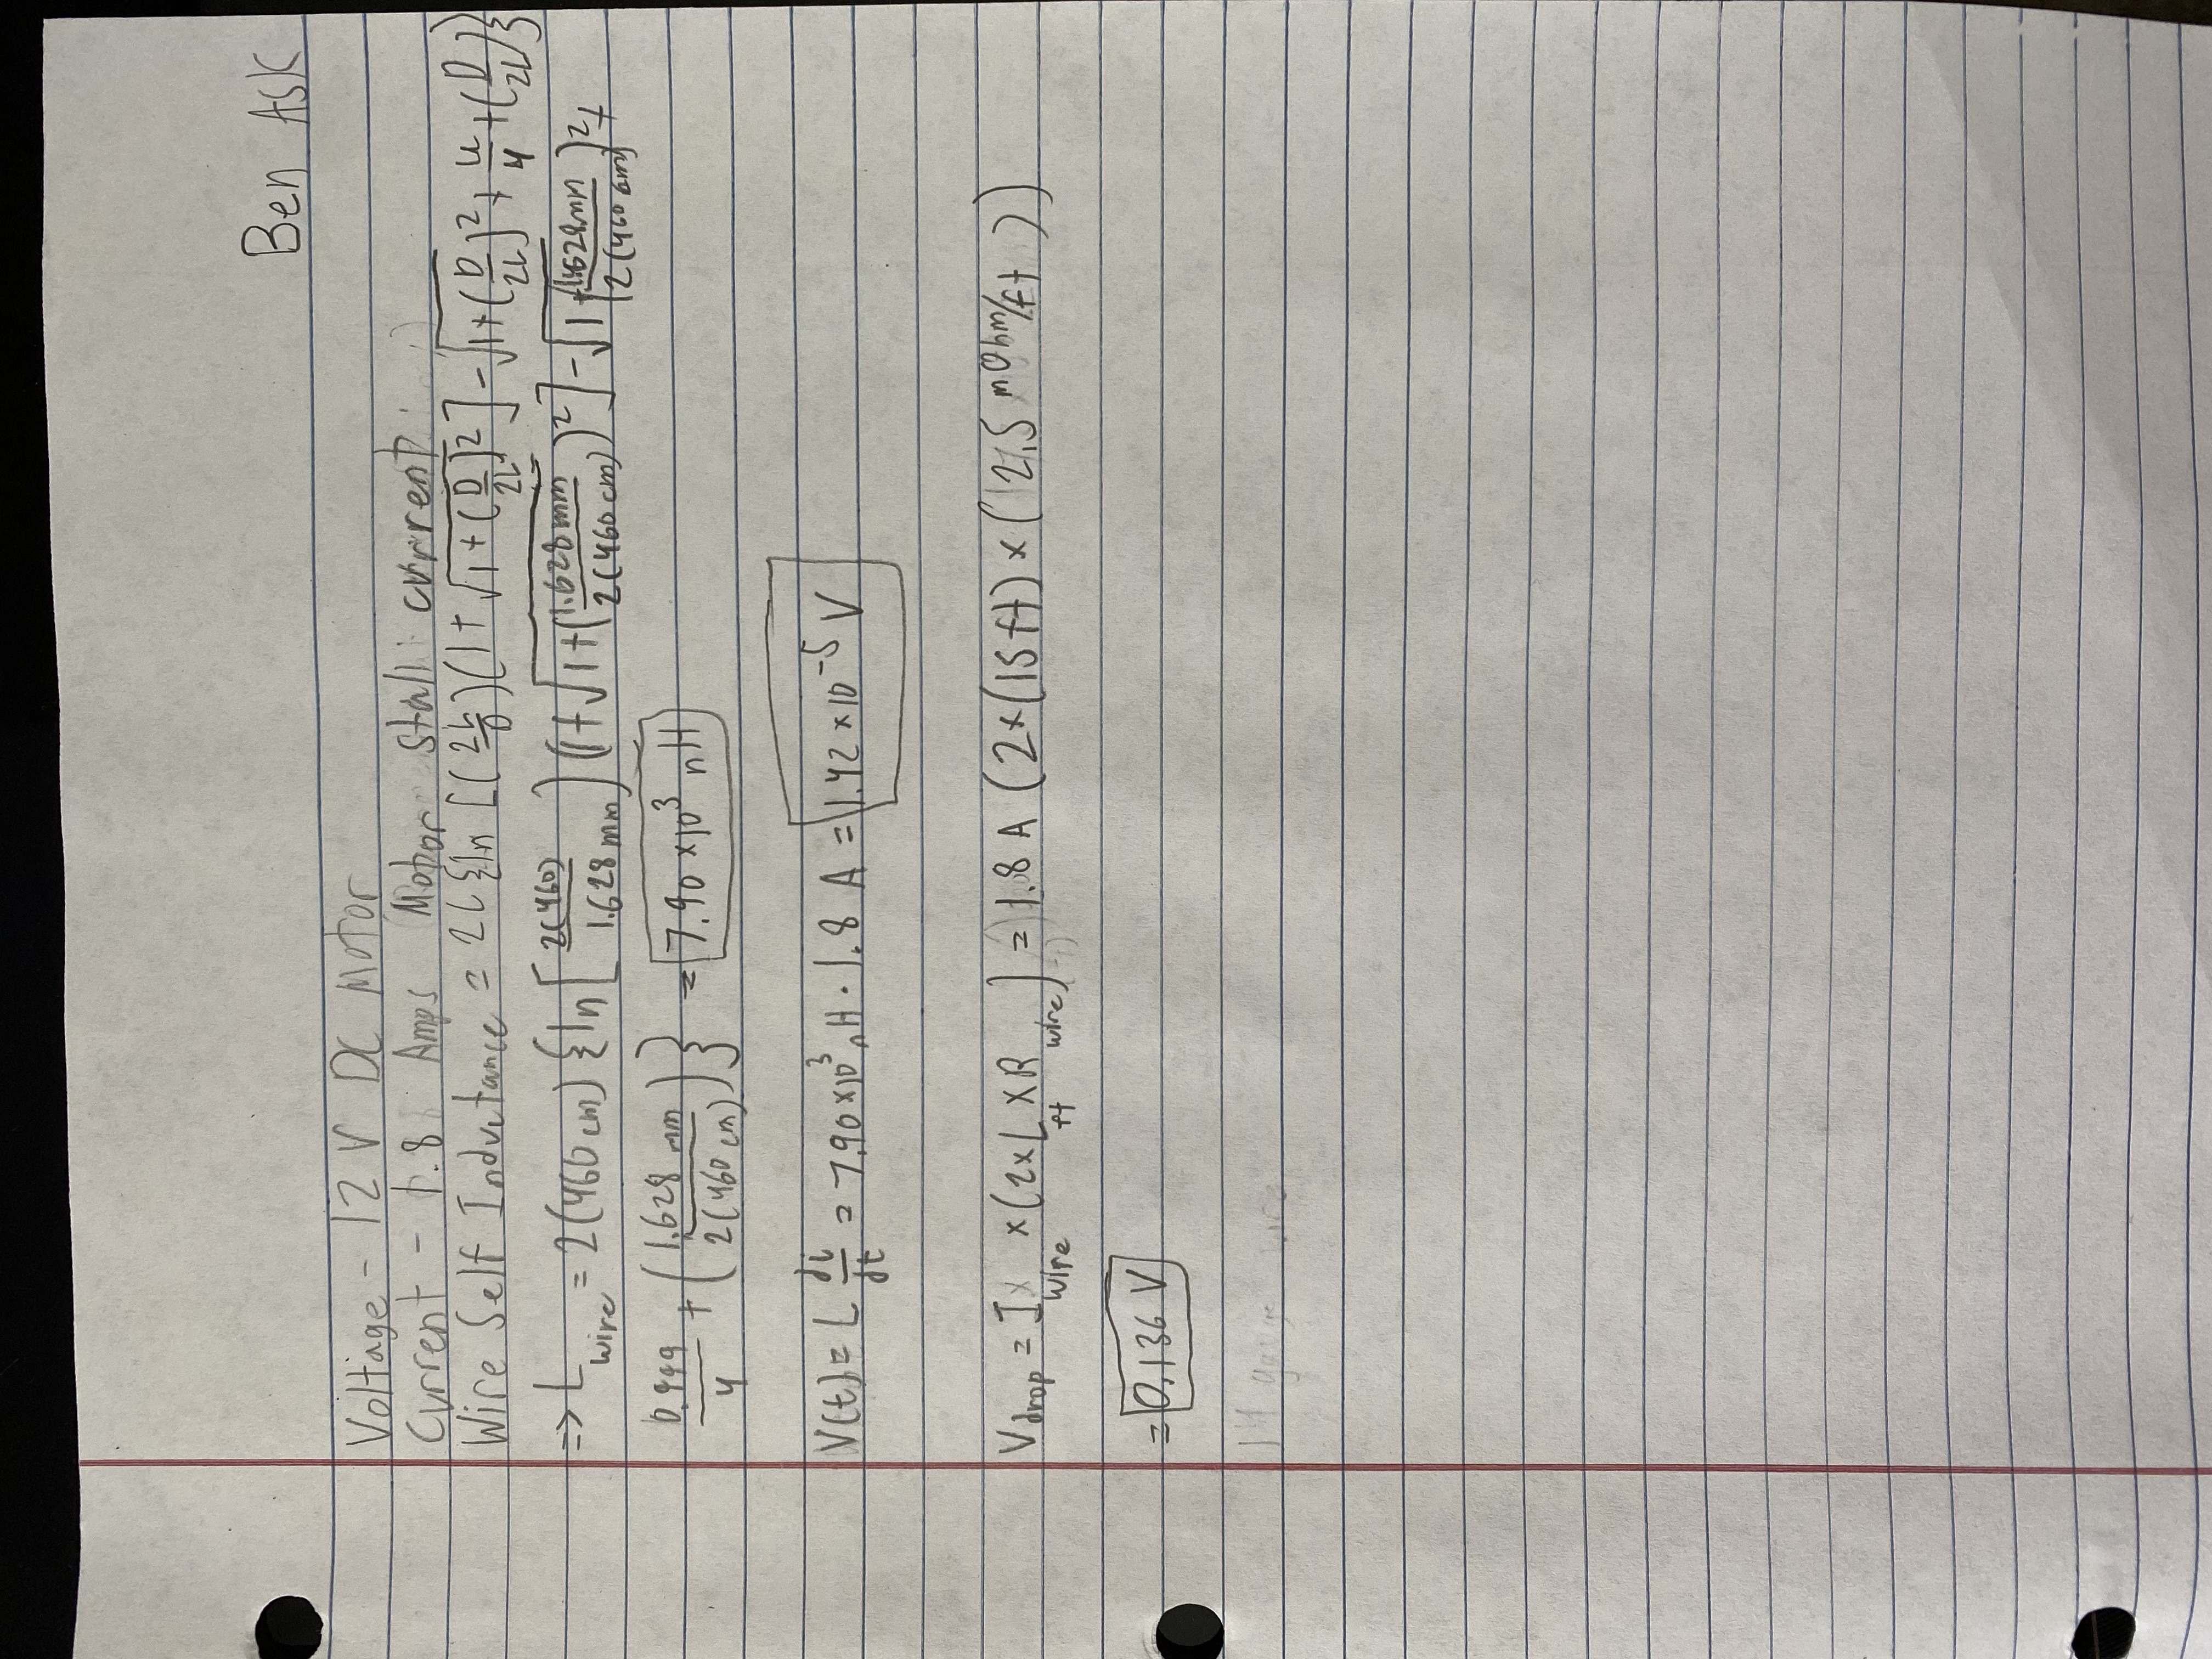 Ben Ask
Voltage - 12 V DC Motor
Current - 1.8 Amps Motor stall current
Wire Self Inductance = 2L{ln[(2L/D)(1+√1+(D/2L)²]-√1+(D/2L)²+u/4+(D/2L)}
=> L wire = 2(460 cm) {ln[2(460)/1.628 mm](1+√1+(1.628 mm/2(460 cm))²]-√1+(1.628 mm/2(460 cm))²+
0.999/4 + (1.628 mm/2(460 cm))} = 7.90 ×10³ nH
V(t) = L di/dt = 7.90×10³ nH · 1.8 A = 1.42×10⁻⁵ V
Vdrop = I wire × (2×L ft × R wire) = 1.8 A (2×(15 ft) × (2.5 mOhm/ft))
= 0.136 V
14 gauge wire